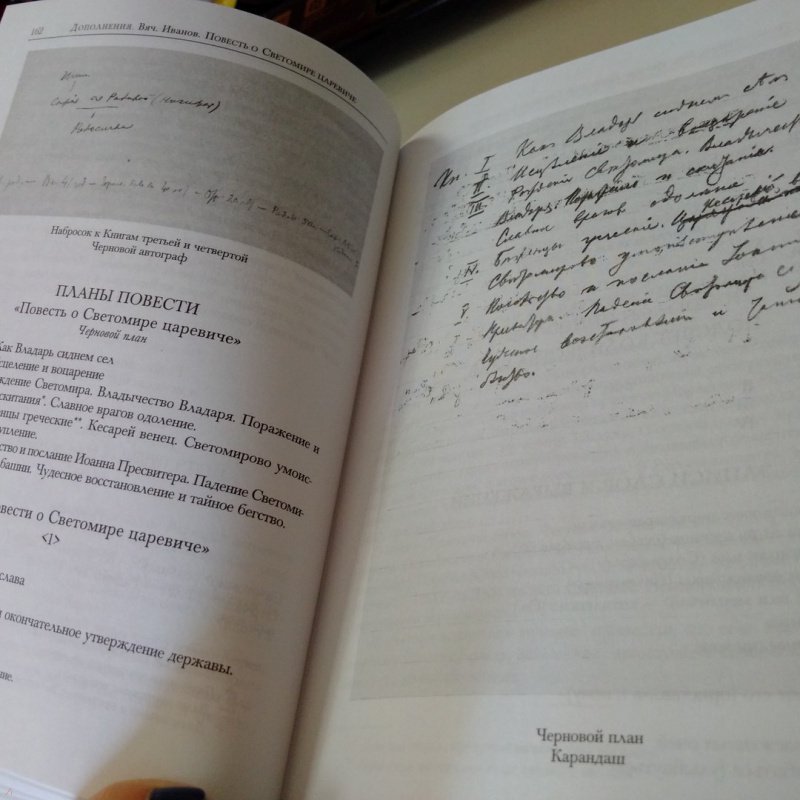 162 Дополнения. Вяч. Иванов. Повесть о Светомире царевиче
Набросок к Книгам третьей и четвертой
Черновой автограф
ПЛАНЫ ПОВЕСТИ
«Повесть о Светомире царевиче»
Черновой план
Как Владарь сиднем сел
сцеление и воцарение
ждение Светомира. Владычество Владаря. Поражение и
скитания*. Славное врагов одоление.
нцы греческие**. Кесарей венец. Светомирово умоис-
тупление.
ство и послание Иоанна Пресвитера. Падение Светоми-
башни. Чудесное восстановление и тайное бегство.
овести о Светомире царевиче»
<1>
слава
и окончательное утверждение державы.
ние.
Кн. I Как Владарь сиднем
II Исцеление и воцарение
III Рождение Светомира. Владычест
Владаря. Поражение и скитания.
Славное врагов одоление.
IV. Беженцы греческие.
Светомирово умоисступление
V. и послание Иоанна
Пресвитера. Падение Светомира
Чудесное восстановление и
бегство.
Черновой план
Карандаш